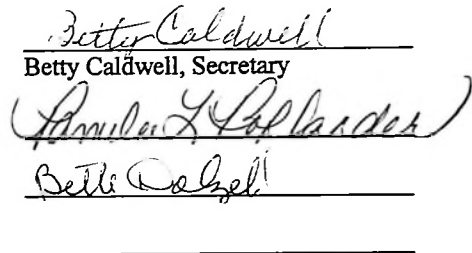 Betty Caldwell
Betty Caldwell, Secretary
Pamela L Pollander
Bette Dalzell